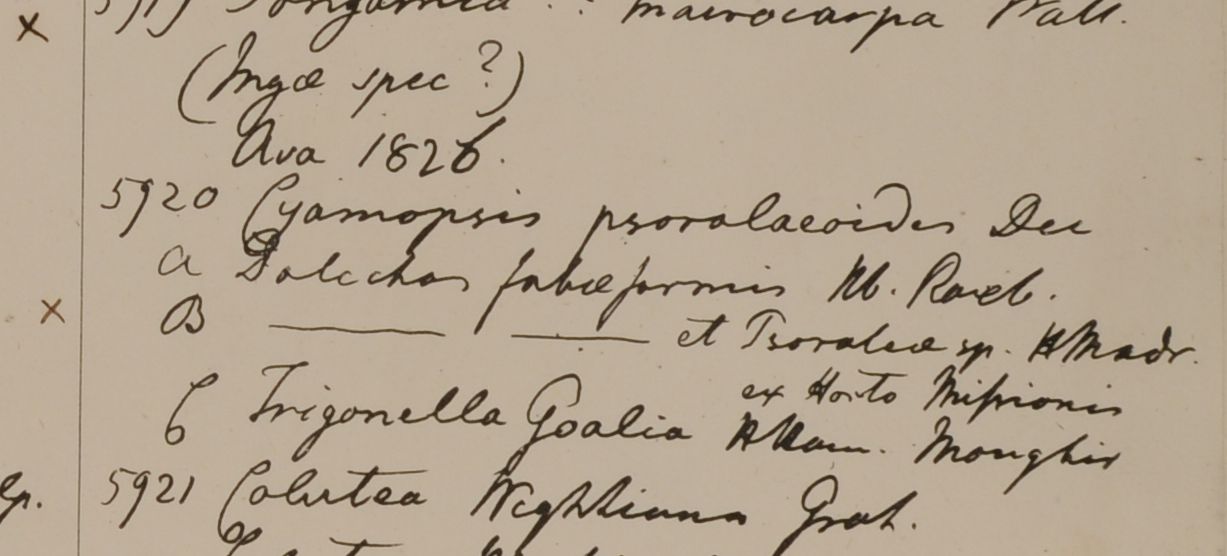 x 5919 Pongamia .. macrocarpa Wall.
(Ingæ spec ?)
Ava 1826.
5920 Cyamopsis psoralaeoides Dec
a Dolichos fabæformis Hb. Roxb.
x B —— —— et Psoraleæ sp. H Madr.
ex Horto Missionis
C Trigonella Goalia H Ham. Monghir
5921 Colutea Wightiana Grah.